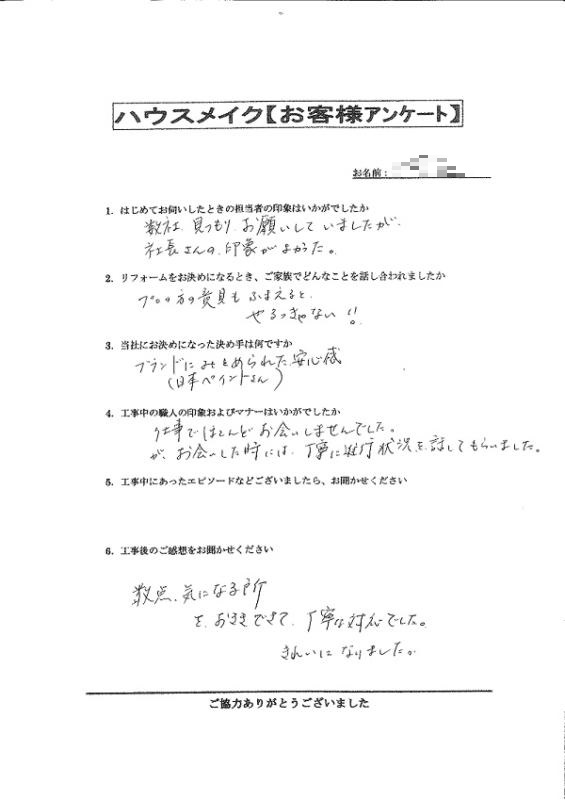 ハウスメイク【お客様アンケート】
お名前：
1. はじめてお伺いしたときの担当者の印象はいかがでしたか
数社 見つもり お願いしていましたが、
社長さんの、印象がよかった。
2. リフォームをお決めになるとき、ご家族でどんなことを話し合われましたか
プロの方の意見もふまえると、
やるっきゃない!!
3. 当社にお決めになった決め手は何ですか
ブランドにみとめられた安心感
(日本ペイントさん)
4. 工事中の職人の印象およびマナーはいかがでしたか
仕事でほとんどお会いしませんでした。
が、お会いした時には、丁寧に進行状況を話してもらいました。
5. 工事中にあったエピソードなどございましたら、お聞かせください
6. 工事後のご感想をお聞かせください
数点、気になる所
を、できて、丁寧な対応でした。
きれいになりました。
ご協力ありがとうございました